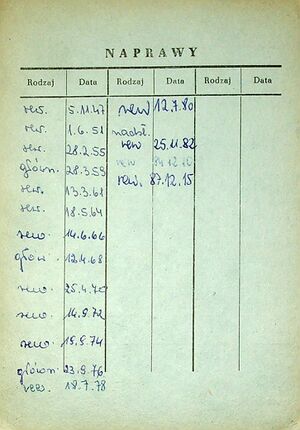 NAPRAWY
Rodzaj Data Rodzaj Data Rodzaj Data
rew. 5.11.47 rew 12.7.80
rew. 1.6.51 nadzw.
rew. 28.2.55 rew 25.11.82
główn. 28.3.59 rew 84.12.12
rew. 13.3.61 rew. 87.12.15
rew. 18.5.64
rew. 14.6.66
głów. 12.4.68
rew. 25.4.70
rew. 14.9.72
rew. 19.9.74
główn. 23.9.76
rew. 18.7.78